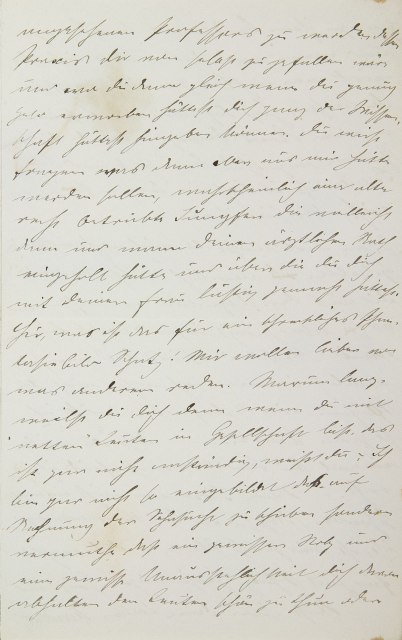 angesehenen Professors zu werden, dessen
Praxis dir von selbst zu gefallen wär
und du dann gleich wenn du genug
erworben hättest dich ganz der Wissen-
schaft hättest hingeben können. Du wirst
fragen was denn aber aus mir hätte
werden sollen, wahrscheinlich eine alte
recht betrübte Jungfer die vielleicht
dann und wann deinen ärztlichen Rath
eingeholt hätte und über die du dich
mit deiner Frau lustig gemacht hättest.
was ist das für ein schreckliches
Schatz! Wir wollen lieber von
was anderem reden. Warum lang-
weilst du dich denn wenn du mit
netten Leuten in Gesellschaft bist, das
ist gar nicht anständig, weißt du? Ich
bin gar nicht so eingebildet das auf
Rechnung der Sehnsucht zu schieben sondern
vermuthe daß ein gewisser Stolz und
eine gewisse dich davon
abhalten den Leuten schön zu thun oder